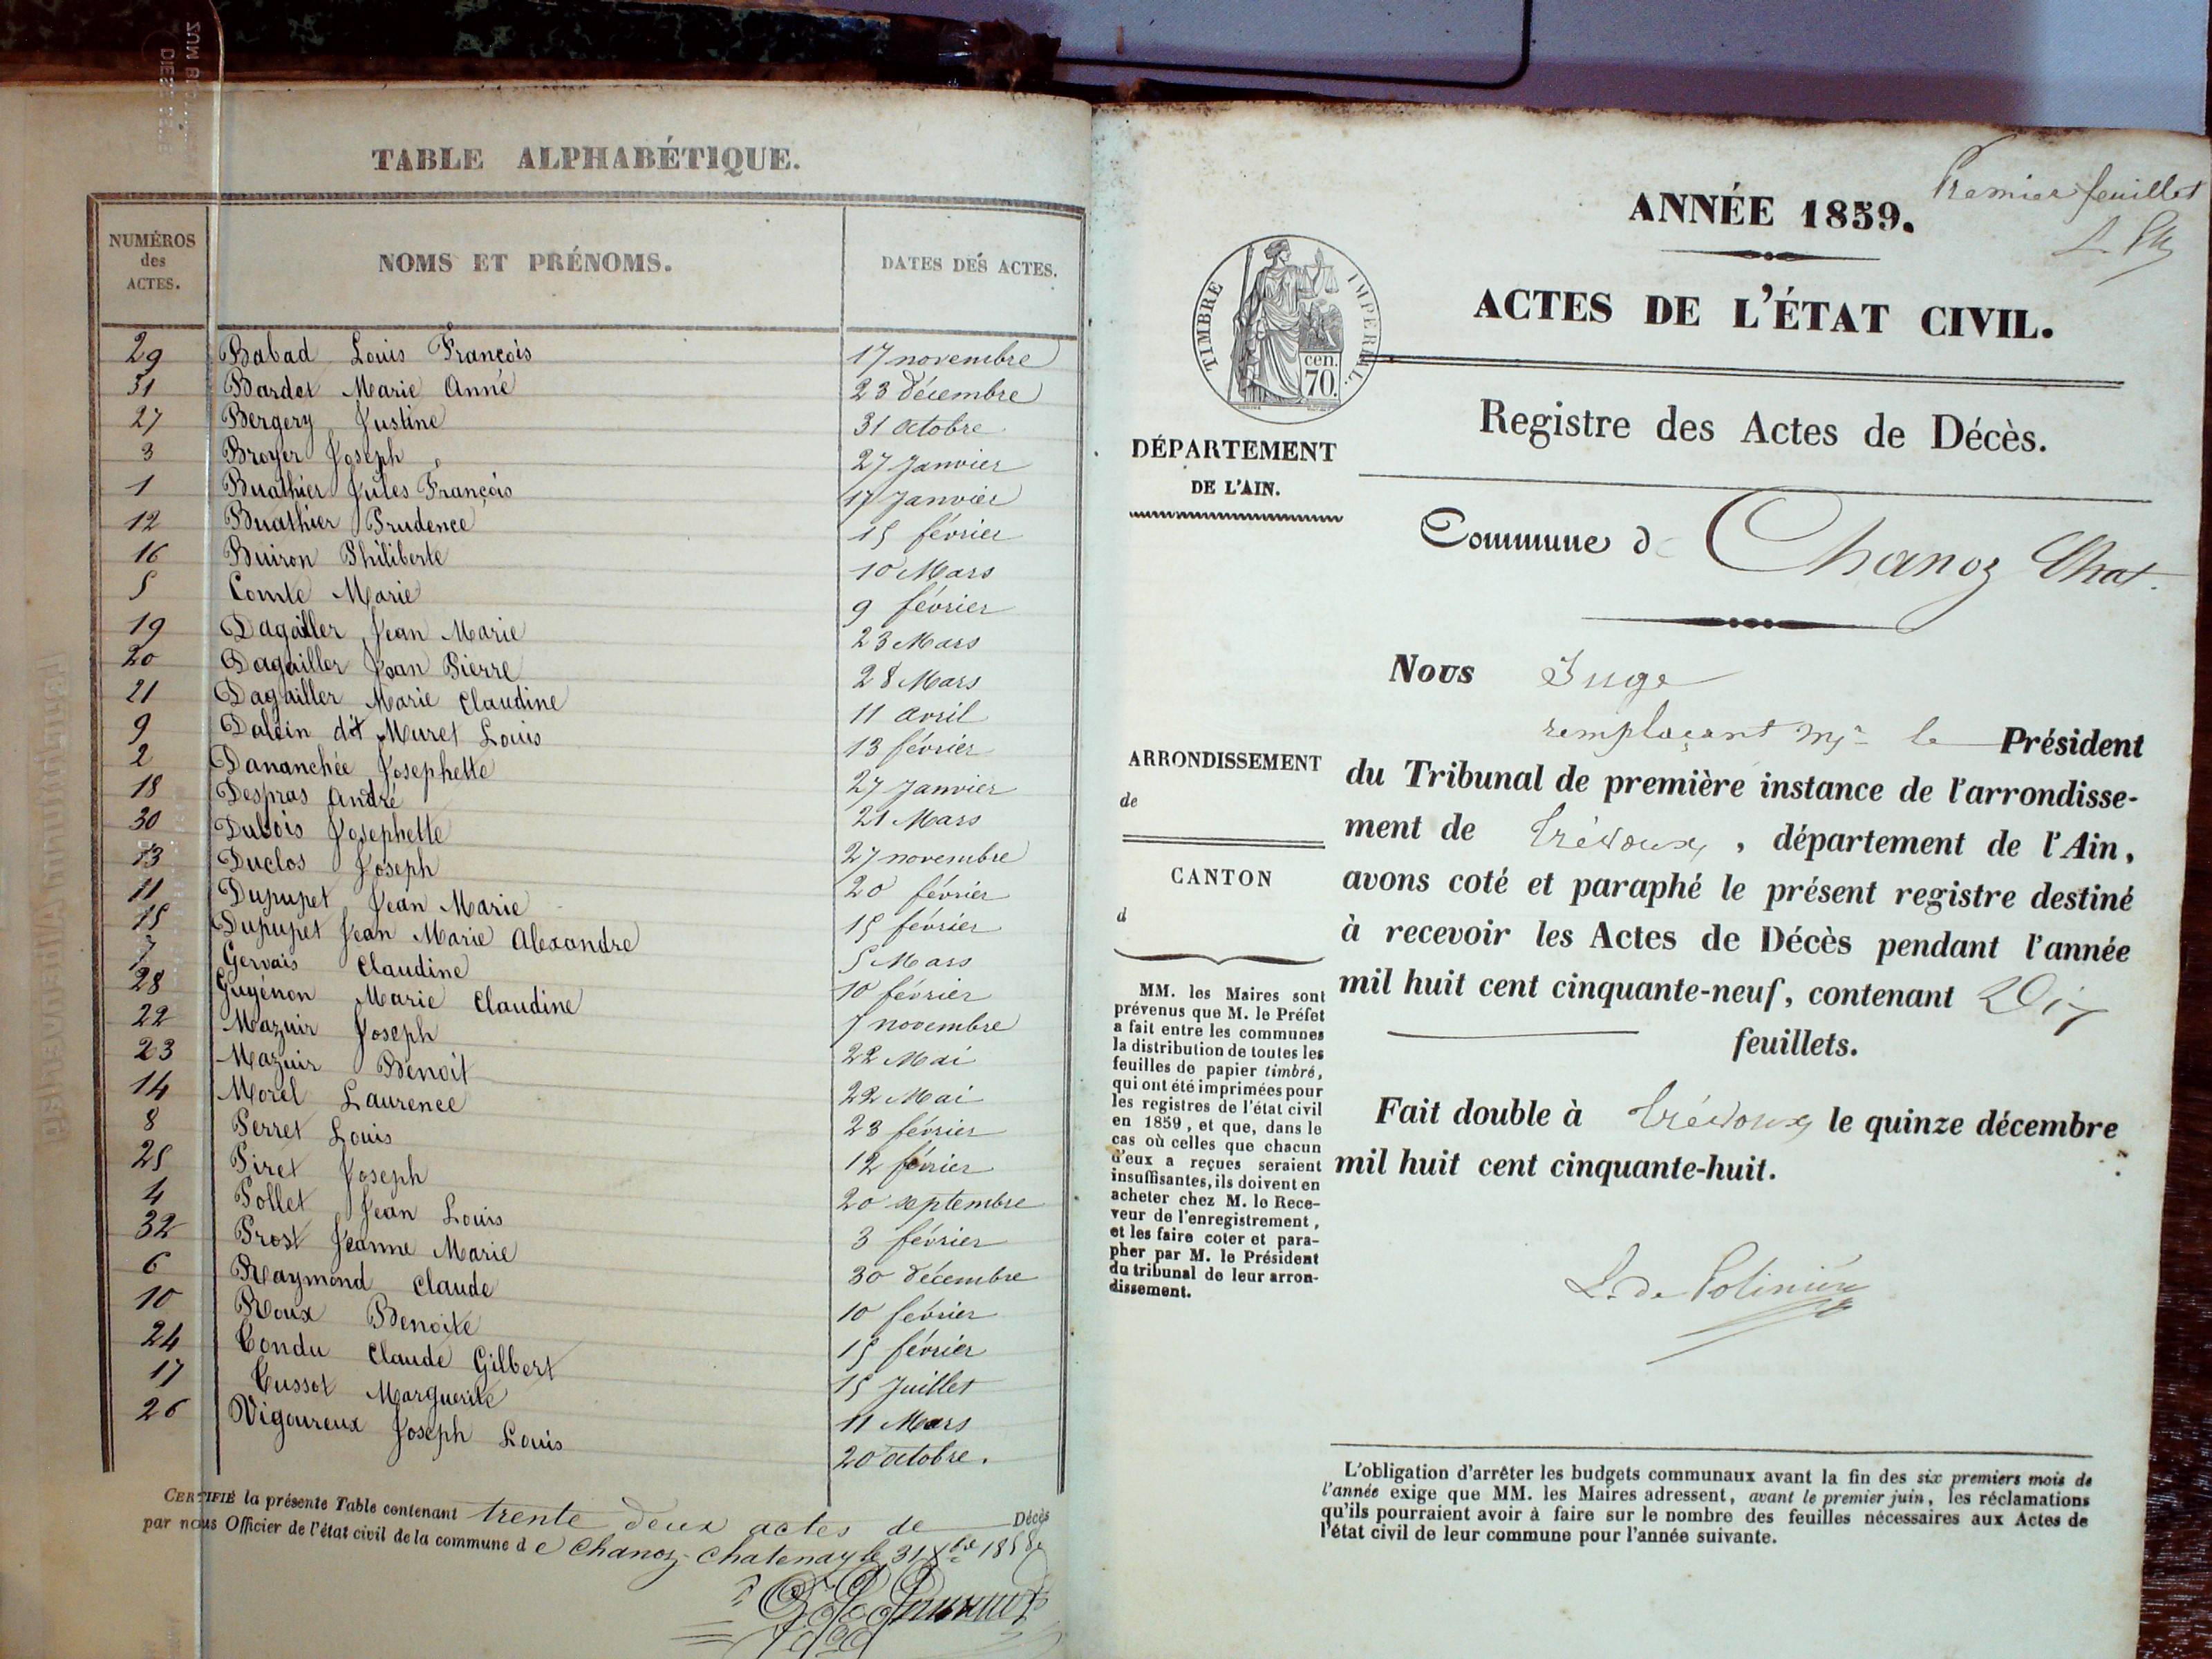 TABLE ALPHABÉTIQUE.
NUMÉROS des ACTES. NOMS ET PRÉNOMS. DATES DES ACTES.
29 Babad Louis François 17 novembre
31 Bardet Marie Anne 23 décembre
27 Bergery Justine 31 octobre
3 Broyer Joseph 27 Janvier
1 Buathier Jules François 17 Janvier
12 Buathier Prudence 15 février
16 Buiron Philiberte 10 Mars
5 Comte Marie 9 février
19 Dagailler Jean Marie 23 Mars
20 Dagailler Jean Pierre 28 Mars
21 Dagailler Marie Claudine 11 avril
9 Dalcin dit Muret Louis 13 février
2 Dananchée Josephette 27 Janvier
18 Despras André 21 Mars
30 Dubois Josephette 27 novembre
13 Duclos Joseph 20 février
11 Dupupet Jean Marie 15 février
15 Dupupet Jean Marie Alexandre 5 Mars
7 Gervais Claudine 10 février
28 Guyénon Marie Claudine 1 novembre
22 Mazuir Joseph 22 Mai
23 Mazuir Benoit 22 Mai
14 Morel Laurence 23 février
8 Perret Louis 12 février
25 Piret Joseph 20 septembre
4 Pollet Jean Louis 3 février
32 Prost Jeanne Marie 30 décembre
6 Raymond Claude 10 février
10 Roux Benoite 15 février
24 Tondu Claude Gilbert 15 Juillet
17 Tussot Marguerite 11 Mars
26 Vigoureux Joseph Louis 20 octobre.
CERTIFIÉ la présente Table contenant trente deux actes de Décès
par nous Officier de l'état civil de la commune de Chanoz-Chatenay le 31 Xbre 1858
Premier feuillet
ANNÉE 1859.
TIMBRE IMPERIAL.
cen.
70.
ACTES DE L'ÉTAT CIVIL.
Registre des Actes de Décès.
DÉPARTEMENT
DE L'AIN.
Commune de Chanoz Chat.
Nous Juge
remplaçant Mr le Président
du Tribunal de première instance de l'arrondisse-
ment de Trévoux, département de l'Ain,
avons coté et paraphé le présent registre destiné
à recevoir les Actes de Décès pendant l'année
mil huit cent cinquante-neuf, contenant Dix
feuillets.
Fait double à Trévoux le quinze décembre
mil huit cent cinquante-huit.
L. de Polinière
ARRONDISSEMENT
de
CANTON
d
MM. les Maires sont
prévenus que M. le Préfet
a fait entre les communes
la distribution de toutes les
feuilles de papier timbré,
qui ont été imprimées pour
les registres de l'état civil
en 1859, et que, dans le
cas où celles que chacun
d'eux a reçues seraient
insuffisantes, ils doivent en
acheter chez M. le Rece-
veur de l'enregistrement,
et les faire coter et para-
pher par M. le Président
du tribunal de leur arron-
dissement.
L'obligation d'arrêter les budgets communaux avant la fin des six premiers mois de
l'année exige que MM. les Maires adressent, avant le premier juin, les réclamations
qu'ils pourraient avoir à faire sur le nombre des feuilles nécessaires aux Actes de
l'état civil de leur commune pour l'année suivante.